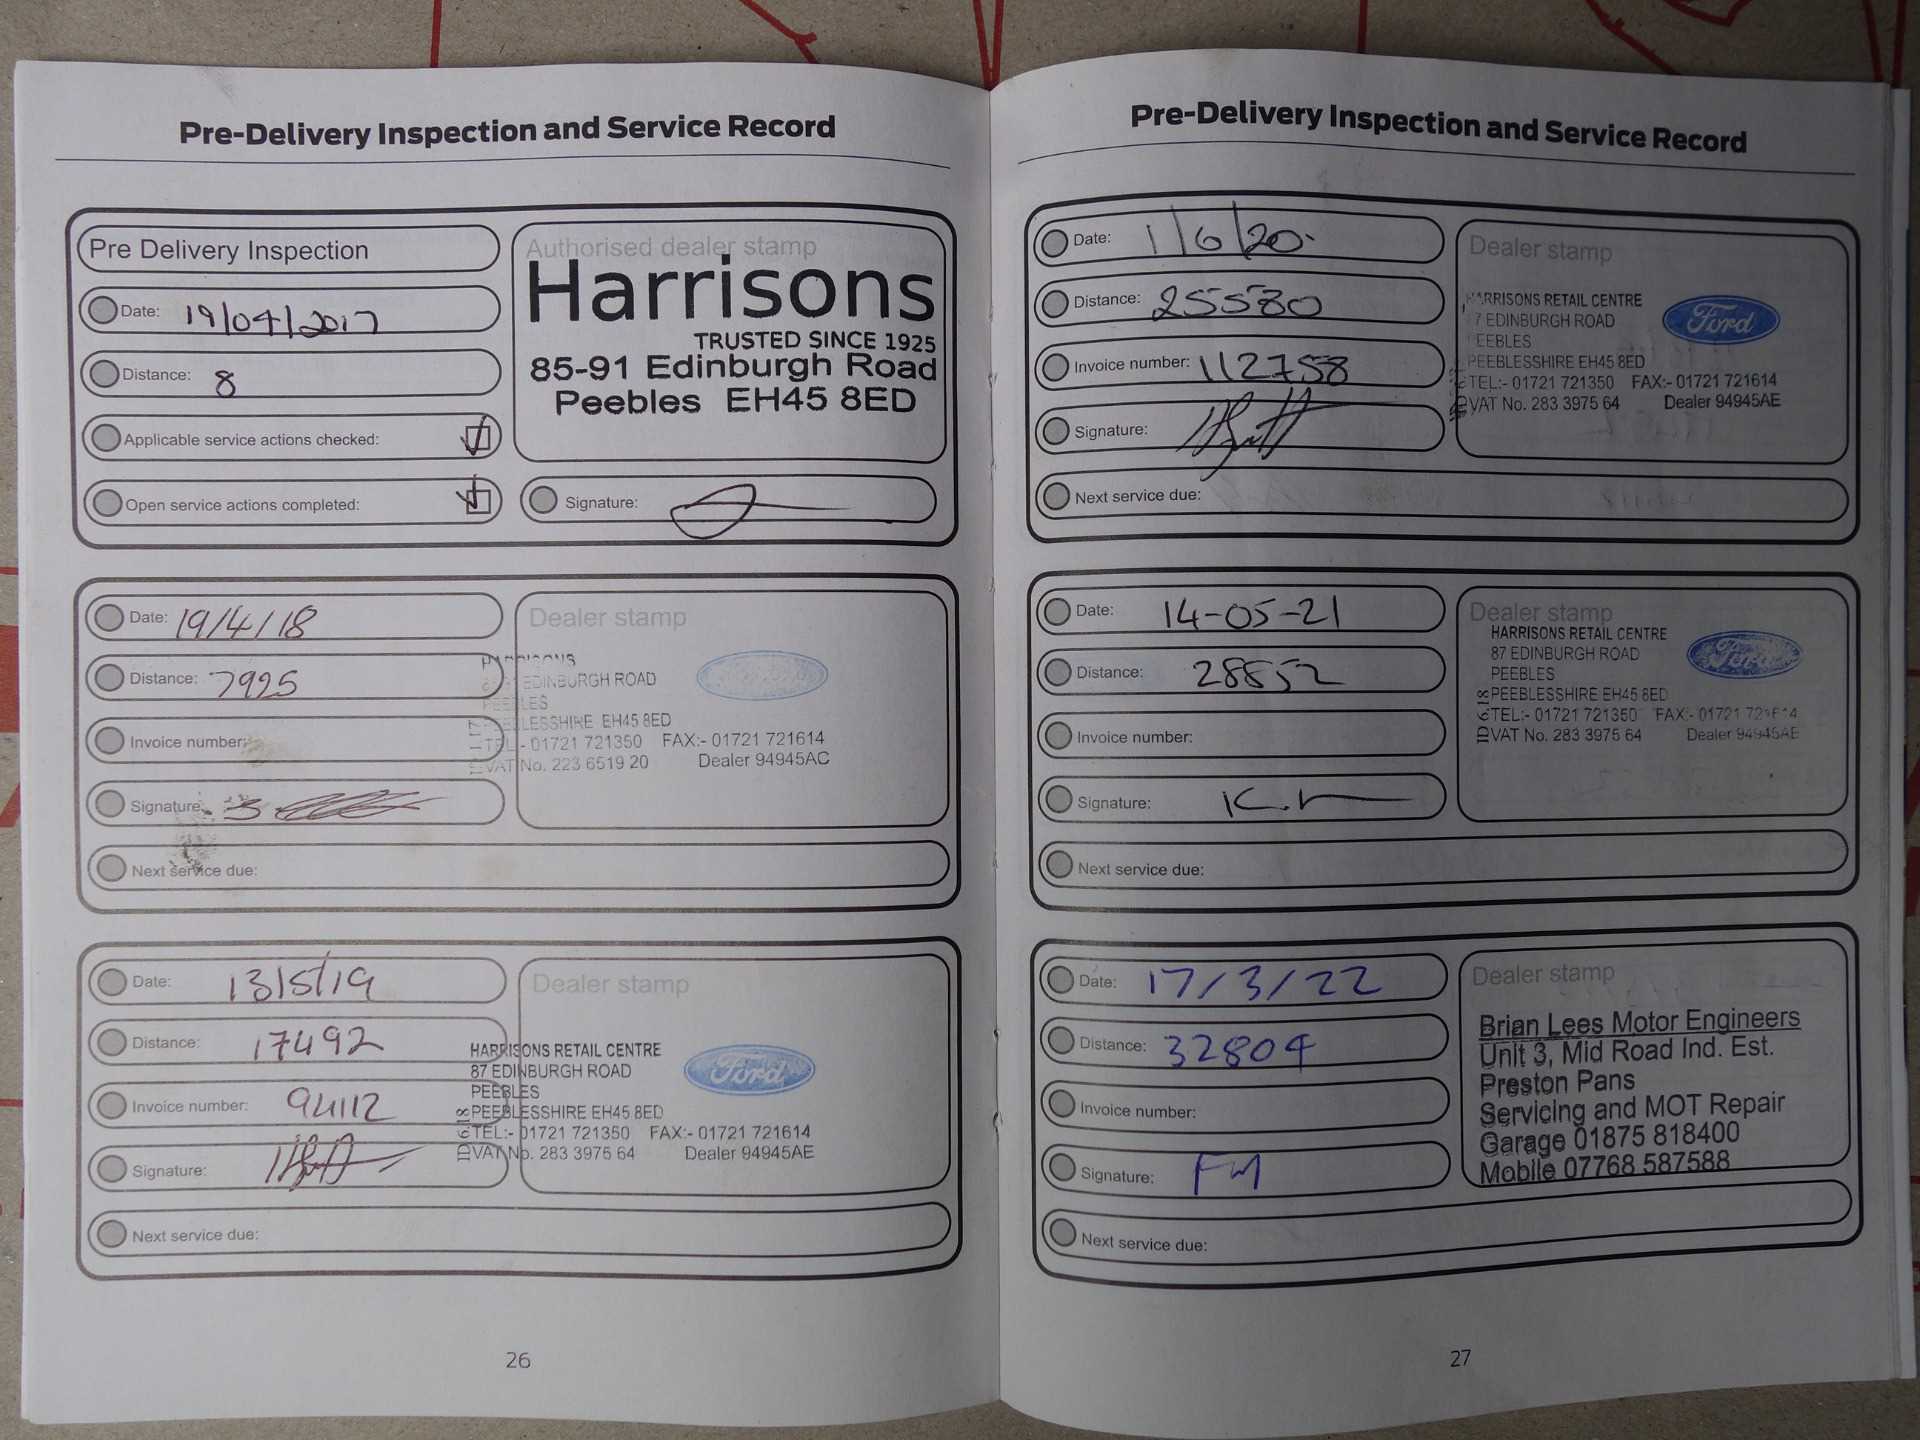 Pre-Delivery Inspection and Service Record
Pre Delivery Inspection
Date: 19/04/2017
Distance: 8
Applicable service actions checked:
Open service actions completed:
Authorised dealer stamp
Harrisons
TRUSTED SINCE 1925
85-91 Edinburgh Road
Peebles EH45 8ED
Signature:
Date: 19/4/18
Distance: 7925
Invoice number:
Signature:
Next service due:
Dealer stamp
EDINBURGH ROAD
PEEBLES
PEEBLESSHIRE EH45 8ED
TEL:- 01721 721350 FAX:- 01721 721614
VAT No. 223 6519 20 Dealer 94945AC
Date: 13/5/19
Distance: 17492
Invoice number: 94112
Signature:
Next service due:
Dealer stamp
HARRISONS RETAIL CENTRE
87 EDINBURGH ROAD
PEEBLES
PEEBLESSHIRE EH45 8ED
TEL:- 01721 721350 FAX:- 01721 721614
VAT No. 283 3975 64 Dealer 94945AE
ID 6.18
Ford
26
Pre-Delivery Inspection and Service Record
Date: 1/6/20.
Distance: 25580
Invoice number: 112758
Signature:
Next service due:
Dealer stamp
HARRISONS RETAIL CENTRE
7 EDINBURGH ROAD
EEBLES
PEEBLESSHIRE EH45 8ED
TEL:- 01721 721350 FAX:- 01721 721614
VAT No. 283 3975 64 Dealer 94945AE
Ford
Date: 14-05-21
Distance: 28852
Invoice number:
Signature:
Next service due:
Dealer stamp
HARRISONS RETAIL CENTRE
87 EDINBURGH ROAD
PEEBLES
PEEBLESSHIRE EH45 8ED
TEL:- 01721 721350 FAX:- 01721 721614
VAT No. 283 3975 64 Dealer 94945AE
ID 6.18
Ford
Date: 17/3/22
Distance: 32804
Invoice number:
Signature: FM
Next service due:
Dealer stamp
Brian Lees Motor Engineers
Unit 3, Mid Road Ind. Est.
Preston Pans
Servicing and MOT Repair
Garage 01875 818400
Mobile 07768 587588
27